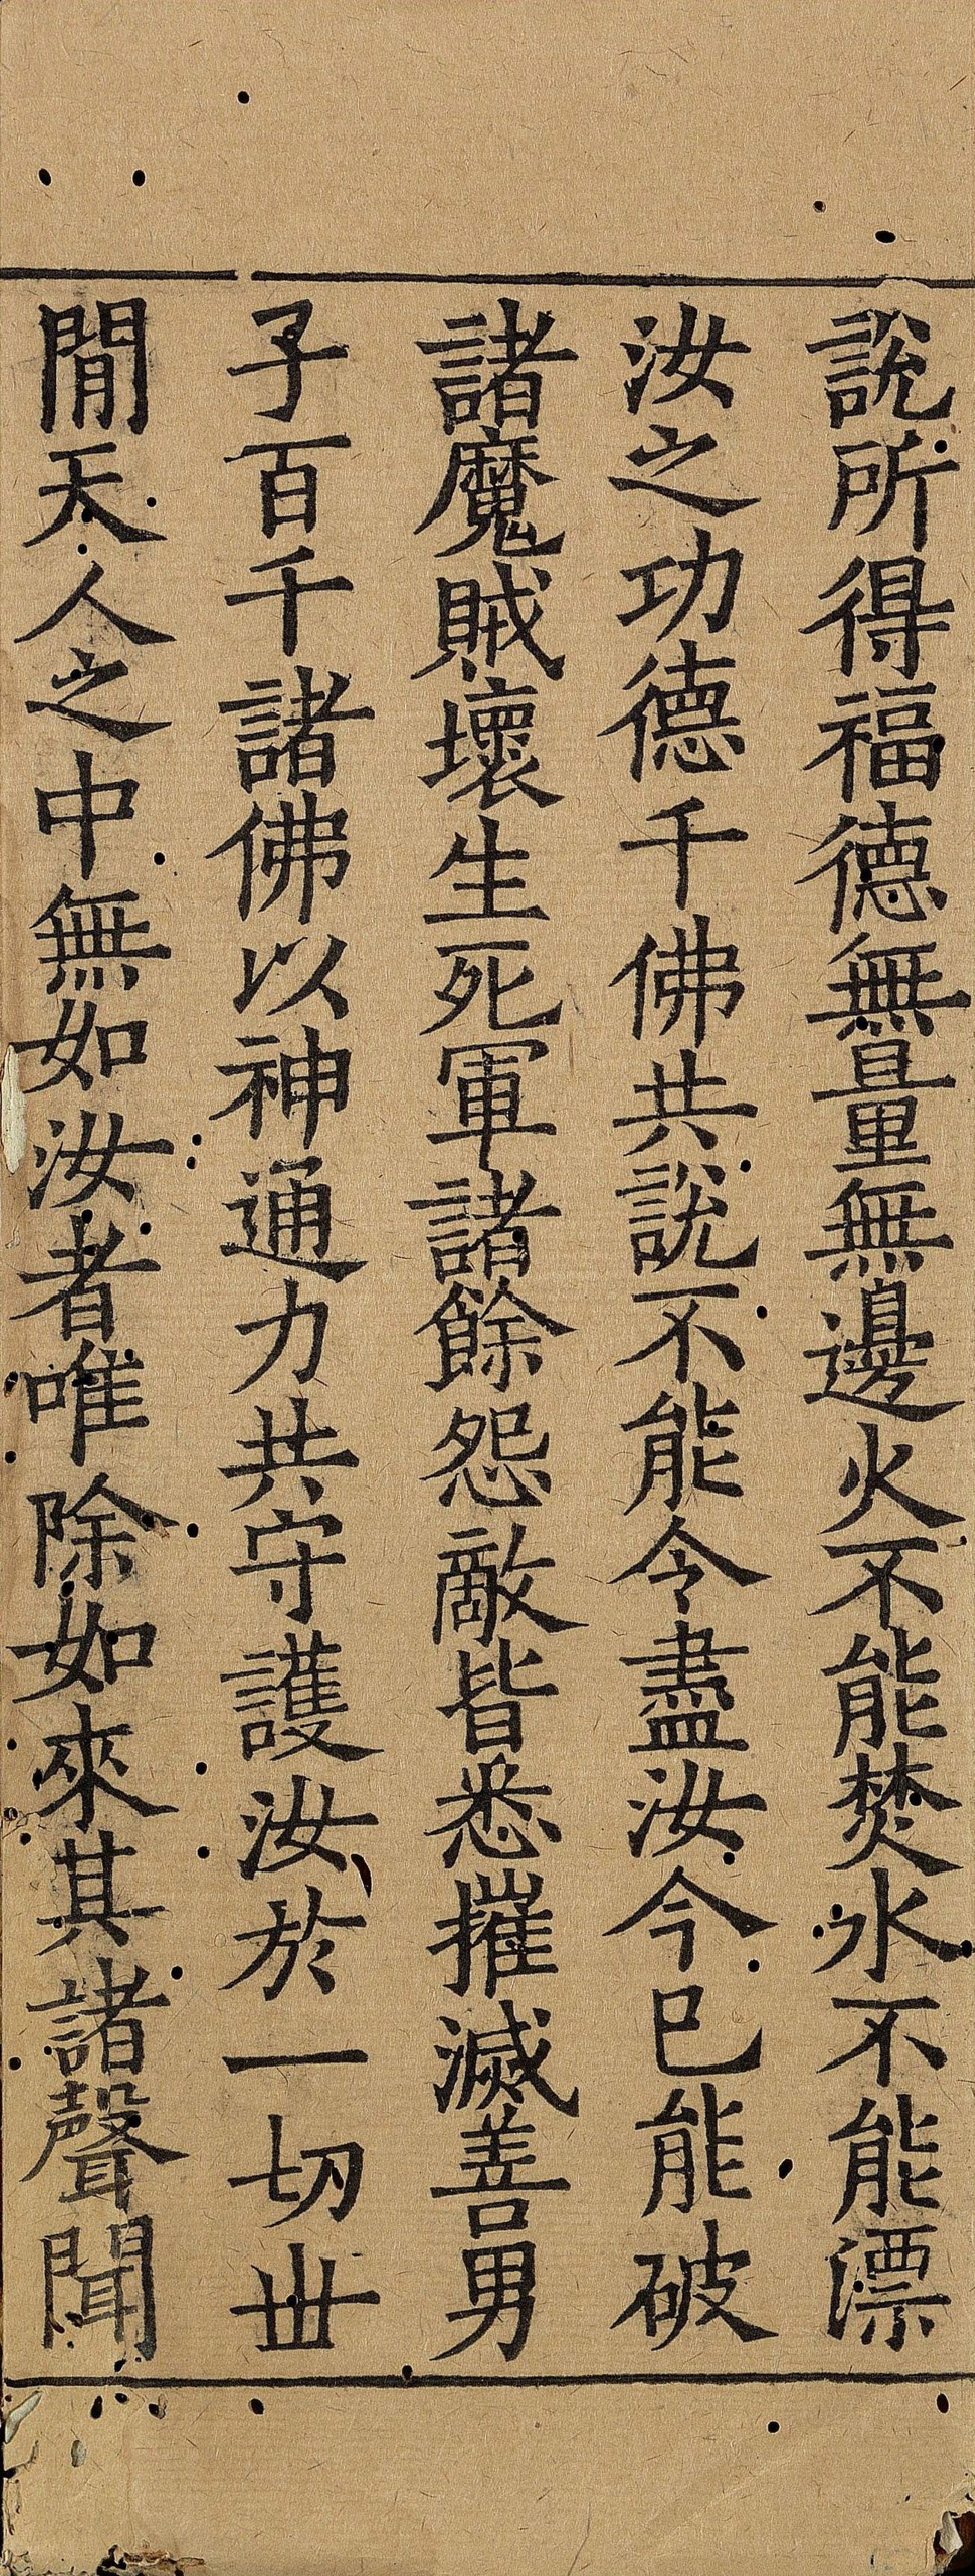 說所得福德無量無邊火不能焚水不能漂
汝之功德千佛共說不能令盡汝今已能破
諸魔賊壞生死軍諸餘怨敵皆悉摧滅善男
子百千諸佛以神通力共守護汝於一切世
間天人之中無如汝者唯除如來其諸聲聞